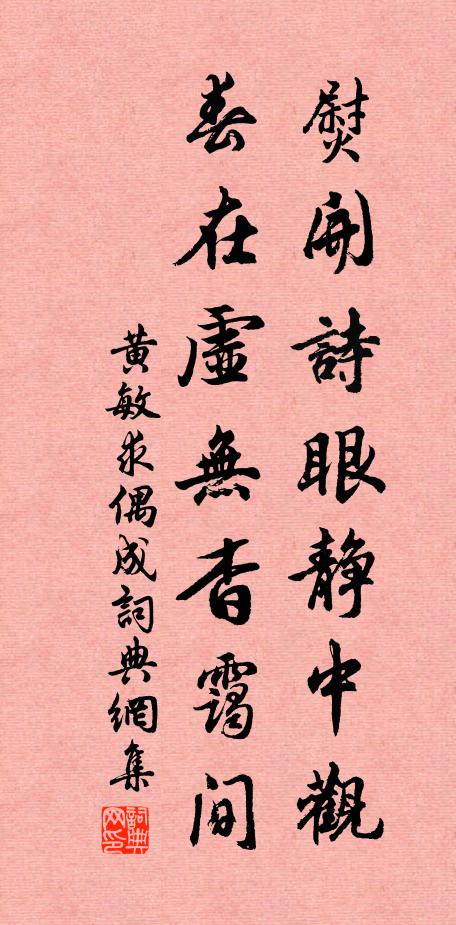 熨開詩眼静中觀
春在虛無杳靄間
黃敏求偶成詞典網集
詞典网印